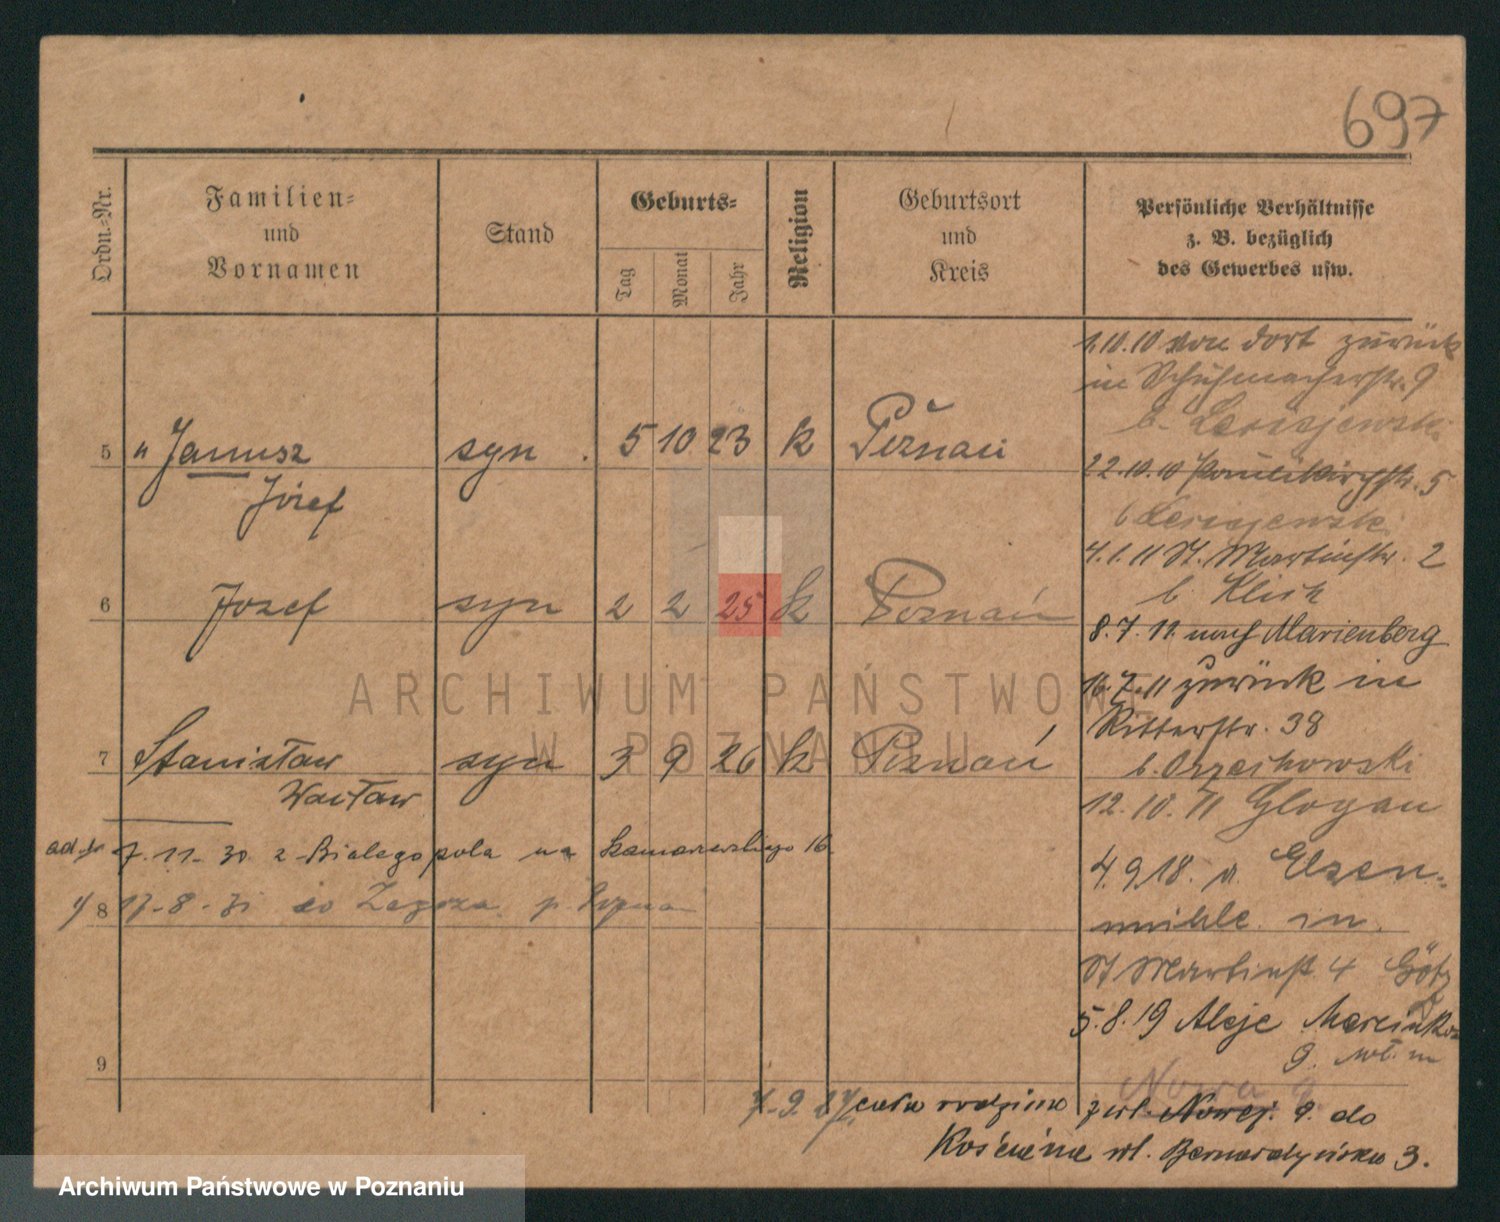 697
Ordn.-Nr.
Familien-
und
Vornamen
Stand
Geburts-
Tag
Monat
Jahr
Religion
Geburtsort
und
Kreis
Persönliche Verhältnisse
z. B. bezüglich
des Gewerbes usw.
5 " Janusz syn 5 10 23 k Poznań
Józef
6 Jozef syn 2 2 25 k Poznań
7 Stanisław syn 3 9 26 k Poznań
Wacław
7.11.30. z Białegopola na 16
8 17-8-31 do
9
1.10.10 von dort zurück
in Schuhmacherstr. 9
b.
22.10.10 Paulikirchstr. 5
b
4.1.11 St. Martinstr. 2
b.
8.7.11 nach Marienberg
16.7.11 zurück in
Ritterstr. 38
b. Orzechowski
12.10.11 Glogau
4.9.18. v. Elsen-
mühle in
St Martinst 4
5.8.19 Aleje
9.
Nowa 9.
7.9.27 cała rodzina z ul. Nowej 9. do
ul. Bernardyńska 3.
ARCHIWUM PAŃSTWOWE
W POZNANIU
Archiwum Państwowe w Poznaniu